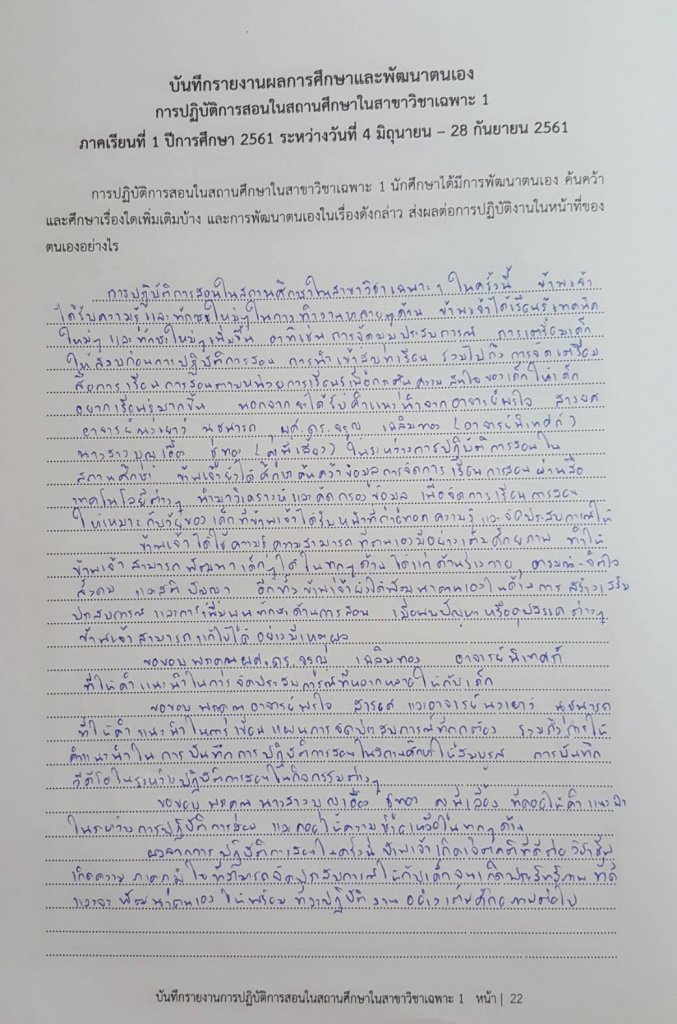 บันทึกรายงานผลการศึกษาและพัฒนาตนเอง
การปฏิบัติการสอนในสถานศึกษาในสาขาวิชาเฉพาะ 1
ภาคเรียนที่ 1 ปีการศึกษา 2561 ระหว่างวันที่ 4 มิถุนายน – 28 กันยายน 2561
การปฏิบัติการสอนในสถานศึกษาในสาขาวิชาเฉพาะ 1 นักศึกษาได้มีการพัฒนาตนเอง ค้นคว้า
และศึกษาเรื่องใดเพิ่มเติมบ้าง และการพัฒนาตนเองในเรื่องดังกล่าว ส่งผลต่อการปฏิบัติงานในหน้าที่ของ
ตนเองอย่างไร
การปฏิบัติการสอนในสถานศึกษาในสาขาวิชาเฉพาะ 1 ในครั้งนี้ ข้าพเจ้า
ได้รับความรู้และทักษะใหม่ๆในการทำงานหลายๆด้าน ข้าพเจ้าได้เรียนรู้เทคนิค
ใหม่ๆ และทักษะใหม่ๆเพิ่มขึ้น อาทิเช่น การจัดประสบการณ์ การเตรียมเด็ก
ให้สงบก่อนการปฏิบัติการสอน การนำเข้าสู่บทเรียน รวมไปถึงการจัดเตรียม
สื่อการเรียนการสอนตามหน่วยการเรียนรู้เพื่อกระตุ้นความสนใจของเด็กให้เด็ก
อยากเรียนรู้มากขึ้น นอกจากจะได้รับคำแนะนำจากอาจารย์พรใจ สารยศ
อาจารย์นวเยาว์ นุชนารถ ,ผศ.ดร.จรูญ เฉลิมทอง (อาจารย์นิเทศก์)
นางสาวบุญเอื้อง ชูทอง (ครูพี่เลี้ยง) ในระหว่างการปฏิบัติการสอนใน
สถานศึกษา ข้าพเจ้ายังได้ศึกษาค้นคว้าข้อมูลการจัดการเรียนการสอนผ่านสื่อ
เทคโนโลยีต่างๆ นำมาวิเคราะห์และคัดกรองข้อมูล เพื่อจัดการเรียนการสอน
ให้เหมาะกับวัยของเด็กที่ข้าพเจ้าได้รับหน้าที่ถ่ายทอดความรู้และจัดประสบการณ์ให้
ข้าพเจ้าได้ใช้ความรู้ความสามารถที่ตนเองมีอย่างเต็มศักยภาพ ทำให้
ข้าพเจ้าสามารถพัฒนาเด็กๆได้ในทุกๆด้าน ได้แก่ ด้านร่างกาย, อารมณ์-จิตใจ
สังคม และสติปัญญา อีกทั้งข้าพเจ้ายังได้พัฒนาตนเองในด้านการสร้างเสริม
ประสบการณ์ และการเพิ่มพูนทักษะด้านการสอน เมื่อพบปัญหาหรืออุปสรรคต่างๆ
ข้าพเจ้าสามารถแก้ไขได้อย่างมีเหตุผล
ขอขอบพระคุณผศ.ดร.จรูญ เฉลิมทอง อาจารย์นิเทศก์
ที่ให้คำแนะนำในการจัดประสบการณ์ที่หลากหลายให้กับเด็ก
ขอขอบพระคุณอาจารย์พรใจ สารยศ และอาจารย์นวเยาว์ นุชนารถ
ที่ให้คำแนะนำในการเขียนแผนการจัดประสบการณ์ที่ถูกต้อง รวมถึงการให้
คำแนะนำในการบันทึกการปฏิบัติการสอนในสถานศึกษาให้สมบูรณ์ การบันทึก
วีดีโอในระหว่างปฏิบัติการสอนในกิจกรรมต่างๆ
ขอขอบพระคุณ นางสาวบุญเอื้อง ชูทอง ครูพี่เลี้ยง ที่คอยให้คำแนะนำ
ในระหว่างการปฏิบัติการสอน และคอยให้ความช่วยเหลือในทุกๆด้าน
ผลจากการปฏิบัติการสอนในครั้งนี้ ข้าพเจ้าเกิดเจตคติที่ดีต่อวิชาชีพ
เกิดความภาคภูมิใจที่สามารถจัดประสบการณ์ให้กับเด็กจนเกิดประสิทธิภาพที่ดี
และจะพัฒนาตนเองให้พร้อมที่จะปฏิบัติงานอย่างเต็มศักยภาพต่อไป
บันทึกรายงานการปฏิบัติการสอนในสถานศึกษาในสาขาวิชาเฉพาะ 1 หน้า | 22